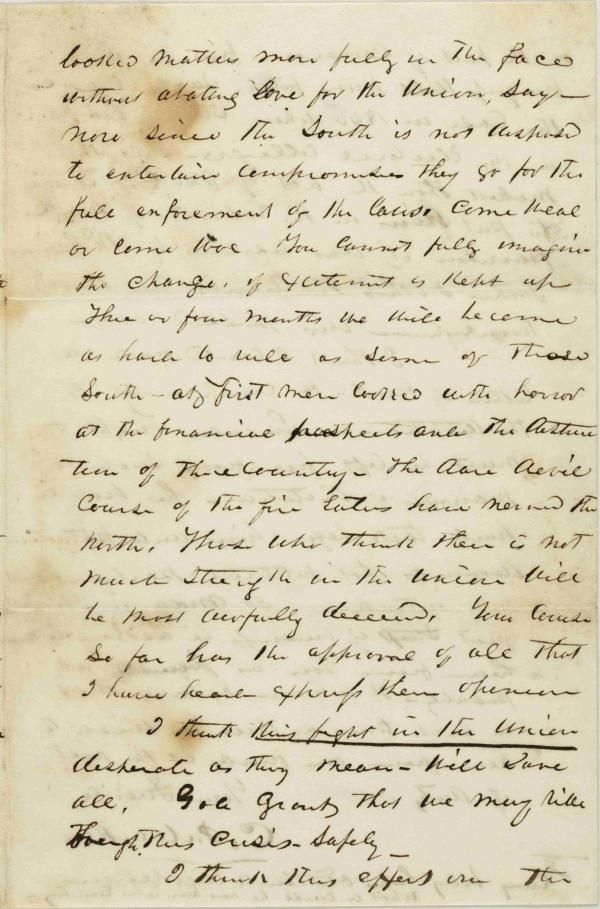 looked matters more fully in the face
without abating love for the Union, say-
now since the South is not disposed
to entertain compromises they go for the
full enforcement of the laws. come weal
or come woe You cannot fully imagine
the change. if excitement is kept up
three or four months we will become
as hard to rule as some of those
South - at first men looked with horror
at the financial prospects and the
tion of the country - The dare devil
course of the fire eaters have nerved the
North. Those who think there is not
much strength in the Union will
be most awfully deceived. Your course
so far has the approval of all that
I have heard express their opinion
I think this fight in the Union
desperate as they mean - will save
all. God Grant that we may
through this crisis - safely -
I think this effort on the